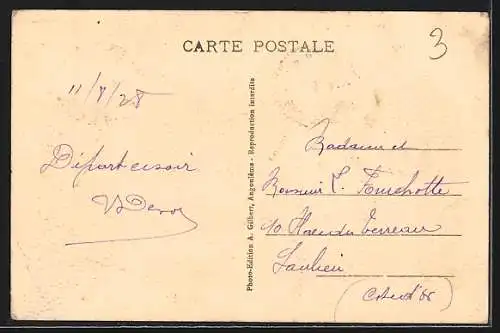 CARTE POSTALE
3
11/8/28
Départ ce soir
Photo-Edition A. Gilbert, Angoulême - Reproduction interdite
Madame et
Monsieur L. Fourchotte
10 Place du Terreau
Saulieu
(Côte d'Or)